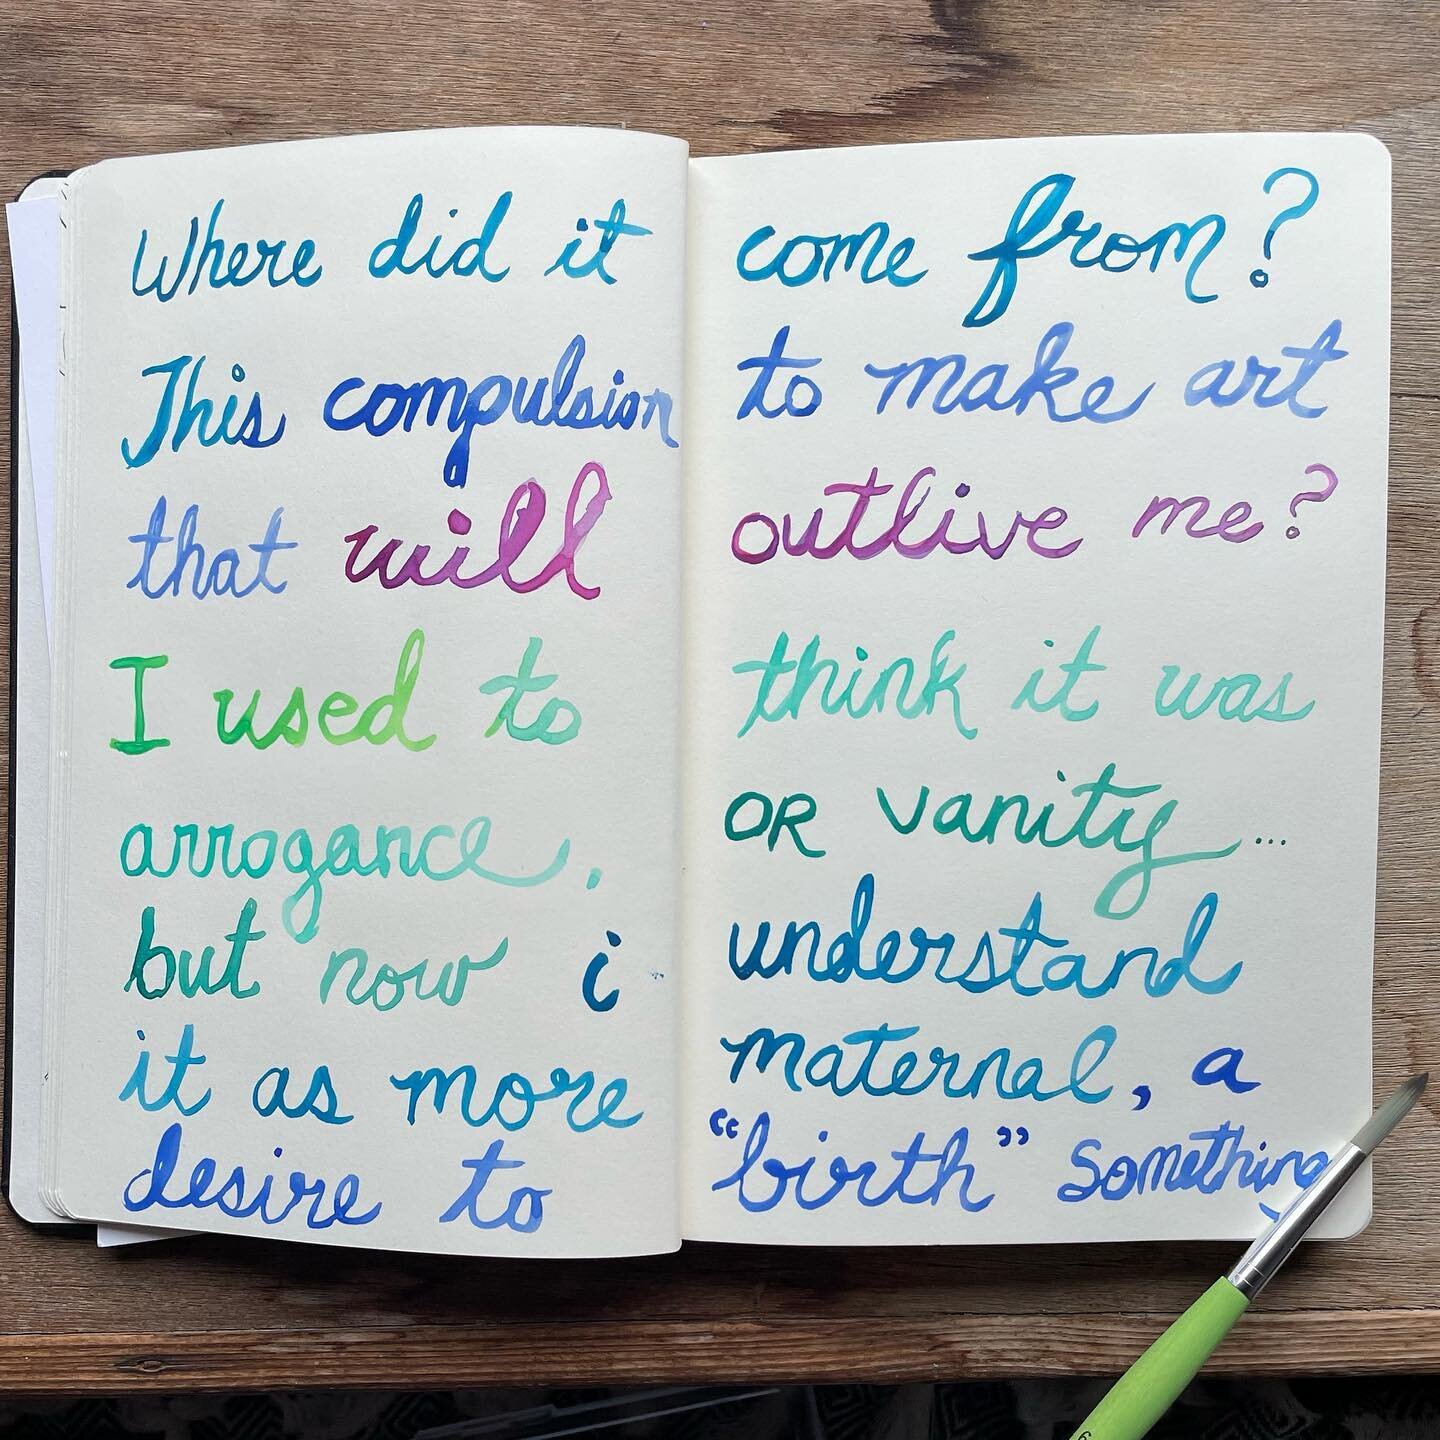 Where did it come from?
This compulsion to make art
that will outlive me?
I used to think it was
arrogance, OR vanity...
but now i understand
it as more maternal, a
desire to "birth" something